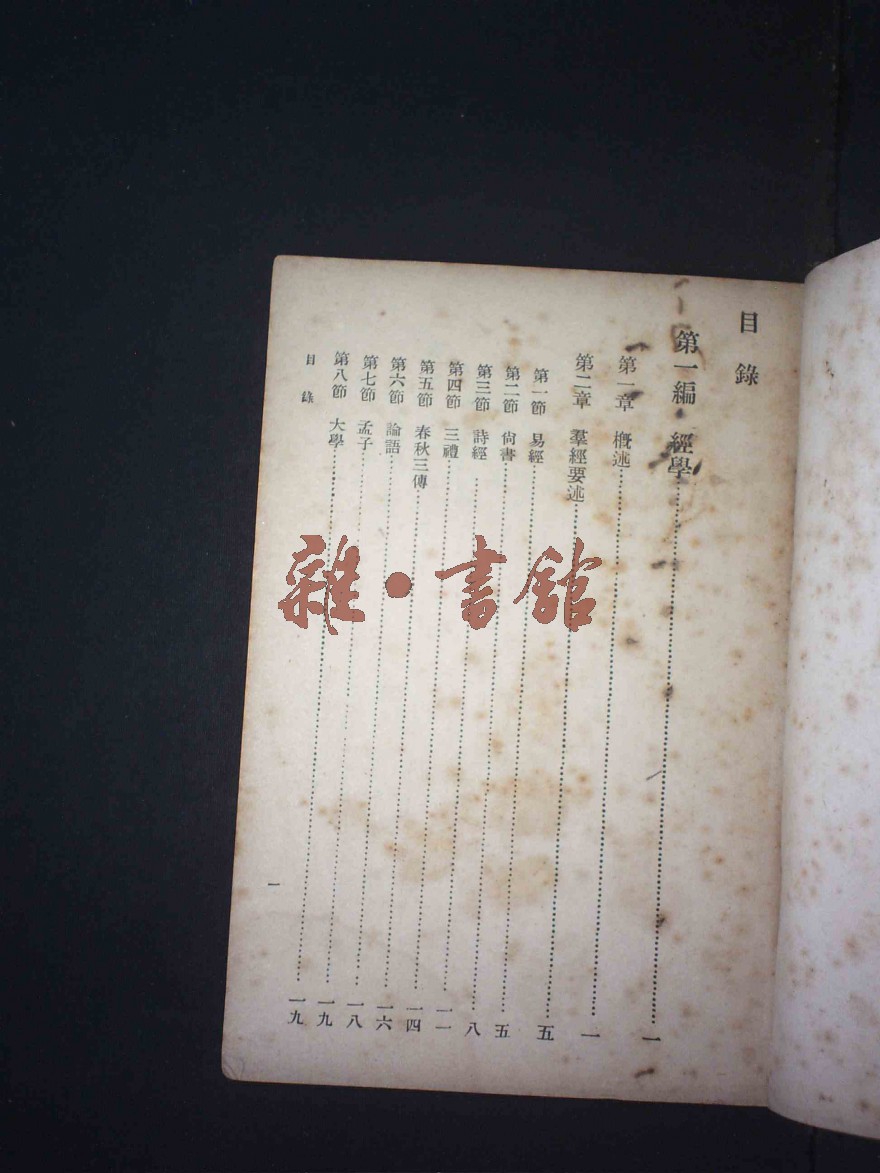 目錄
第一編 經學……一
第一章 槪述……一
第二章 羣經要述……五
第一節 易經……五
第二節 尙書……八
第三節 詩經……一一
第四節 三禮……一四
第五節 春秋三傳……一六
第六節 論語……一八
第七節 孟子……一九
第八節 大學……一九
目錄
一
雜·書館